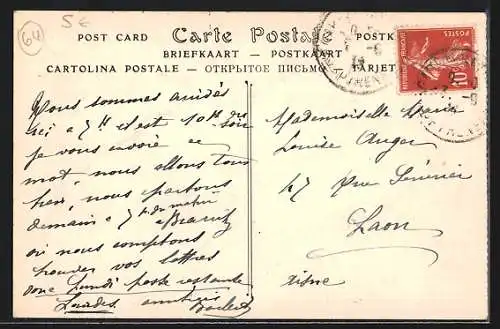 64
5€
POST CARD
Carte Postale
BRIEFKAART — POSTKAART
CARTOLINA POSTALE — ОТКРЫТОЕ ПИСЬМО
POSTES
10
Nous sommes arrivés
ici à 7h il est 10h du soir
je vous envoie ce
mot, nous allons tous
bien, nous partons
demain à 7h du matin
à Biarritz
où nous comptons
trouver vos lettres
Lundi poste restante
Lourdes amitiés
Mademoiselle Maria
Louise Auger
47 Rue Sérurier
Laon
Aisne